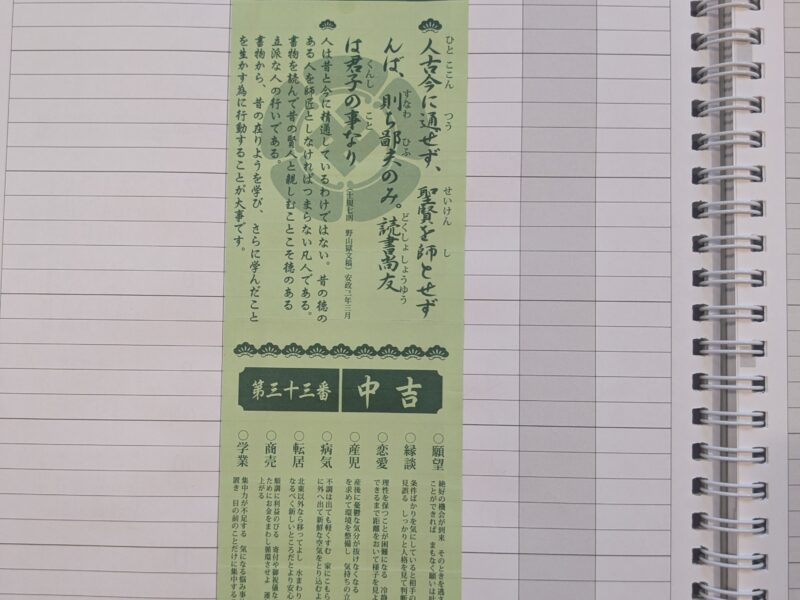 ひと ここん つう せいけん し
人古今に通せず、聖賢を師とせず
すなわ ひふ どくしょ しょうゆう
んば、則ち鄙夫のみ。読書尚友
くんし こと
は君子の事なり
野山獄文稿）安政二年三月
人は昔と今に精通しているわけではない。昔の徳の
ある人を師匠としなければつまらない凡人である。
書物を読んで昔の賢人と親しむことこそ徳のある
立派な人の行いである。
書物から、昔の在りようを学び、さらに学んだこと
を生かす為に行動することが大事です。
中吉
第三十三番
○願望
絶好の機会が到来 そのときを逃さ
ことができれば まもなく願いは
○縁談
条件ばかりを気にしていると相手の
見誤る しっかりと人格を見て判断
○恋愛
理性を保つことが困難になる 冷静
できるまで距離をおいて様子を見よ
○産児
産後に憂鬱な気分が抜けなくなる
を求めて環境を整備し 気持ちの立
○病気
不調は出ても軽くすむ 家にこもら
に外へ出て新鮮な空気をとり込むよ
○転居
北東以外なら移ってよし 水まわり
なるべく新しいところだとより安心
○商売
順調に利益のびる 寄付や御祝儀な
ためにお金をまわし循環させよ 運
上がる
○学業
集中力が不足する 気になる悩み事
置き 目の前のことだけに集中する